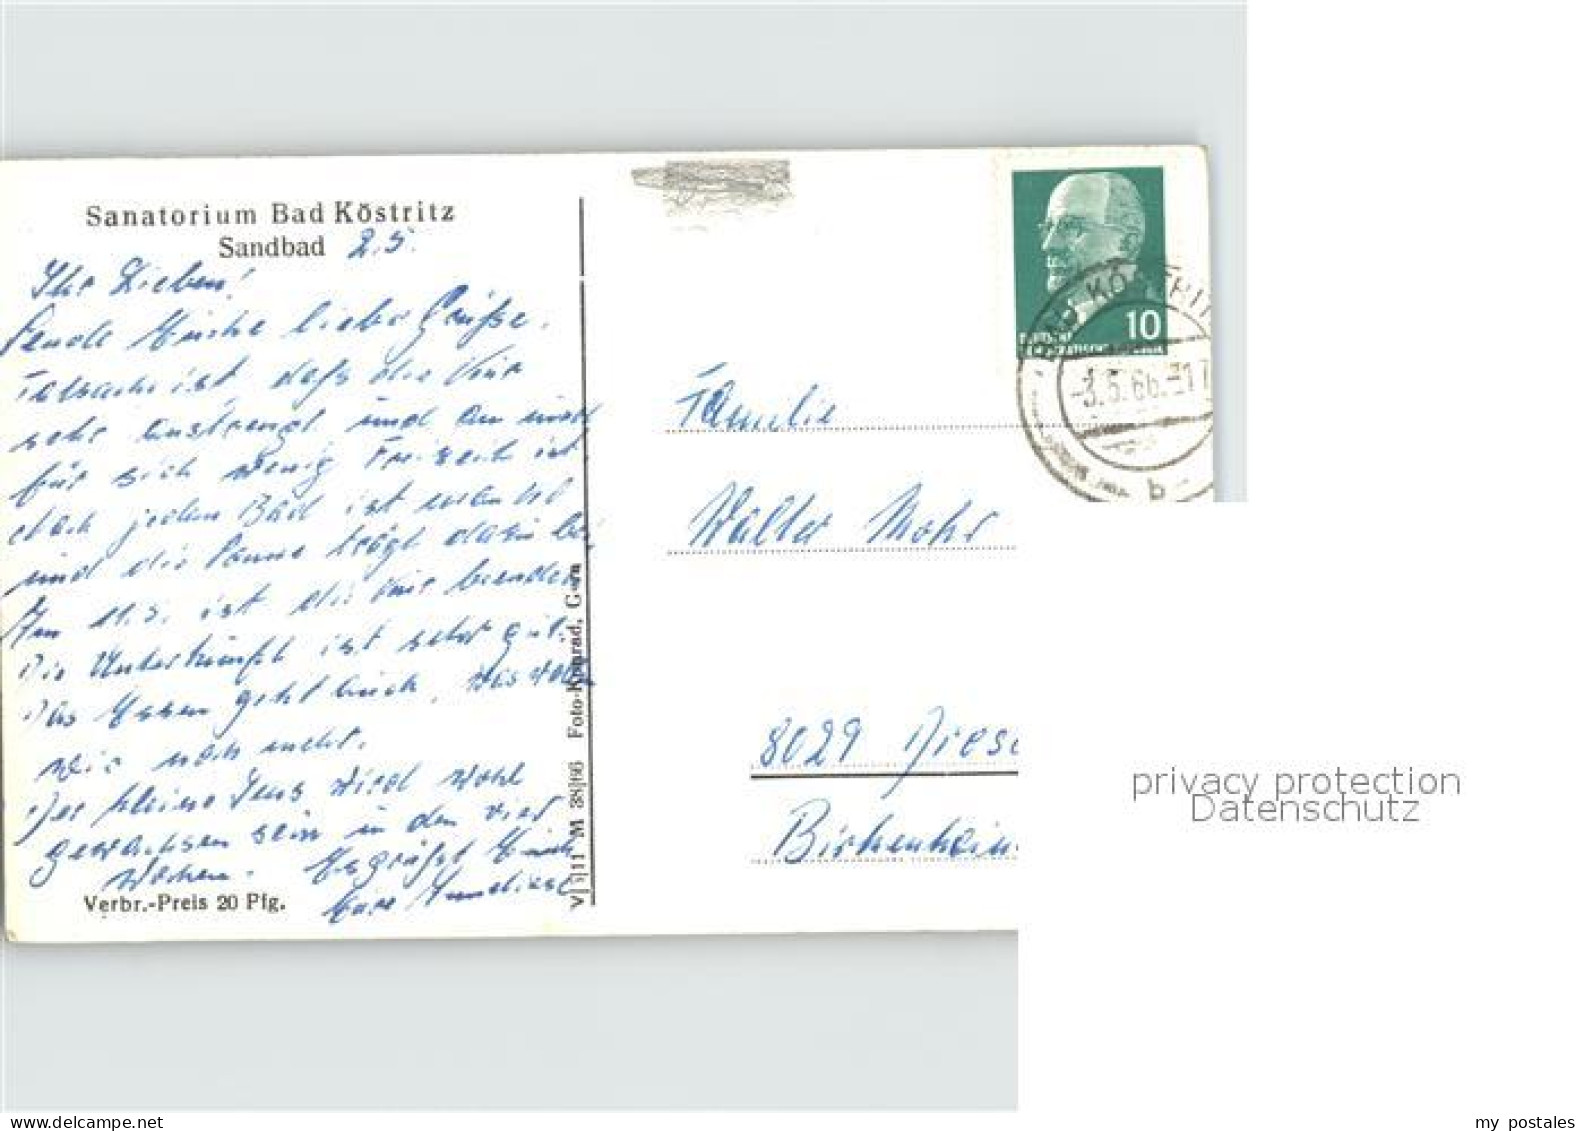 Sanatorium Bad Köstritz
Sandbad 2.5.
Ihr Lieben!
Sende Euche liebe Grüße.
Tatsache ist, daß die Kur
sehr anstrengt und man
für sich wenig Freizeit ist
nach jedem Bad ist man
und die Sonne trägt dazu bei.
Am 11.5. ist die Kur beendet
Die Unterkünft ist sehr gut.
Das Essen geht auch, was woll
wir noch mehr.
Der kleine Jens wird wohl
gewachsen sein in den vier
Wochen. Es grüßt Euch
Eure Anneliese
Verbr.-Preis 20 Pfg.
V/1/11 M 38/66 Foto-Konrad, Gera
10
DEUTSCHE
DEMOKRATISCHE REPUBLIK
BAD KÖSTRITZ
-3.5.66.-17
b
Familie
Walter Mohr
8029 Dresd
Birkenhain
privacy protection
Datenschutz
my postales